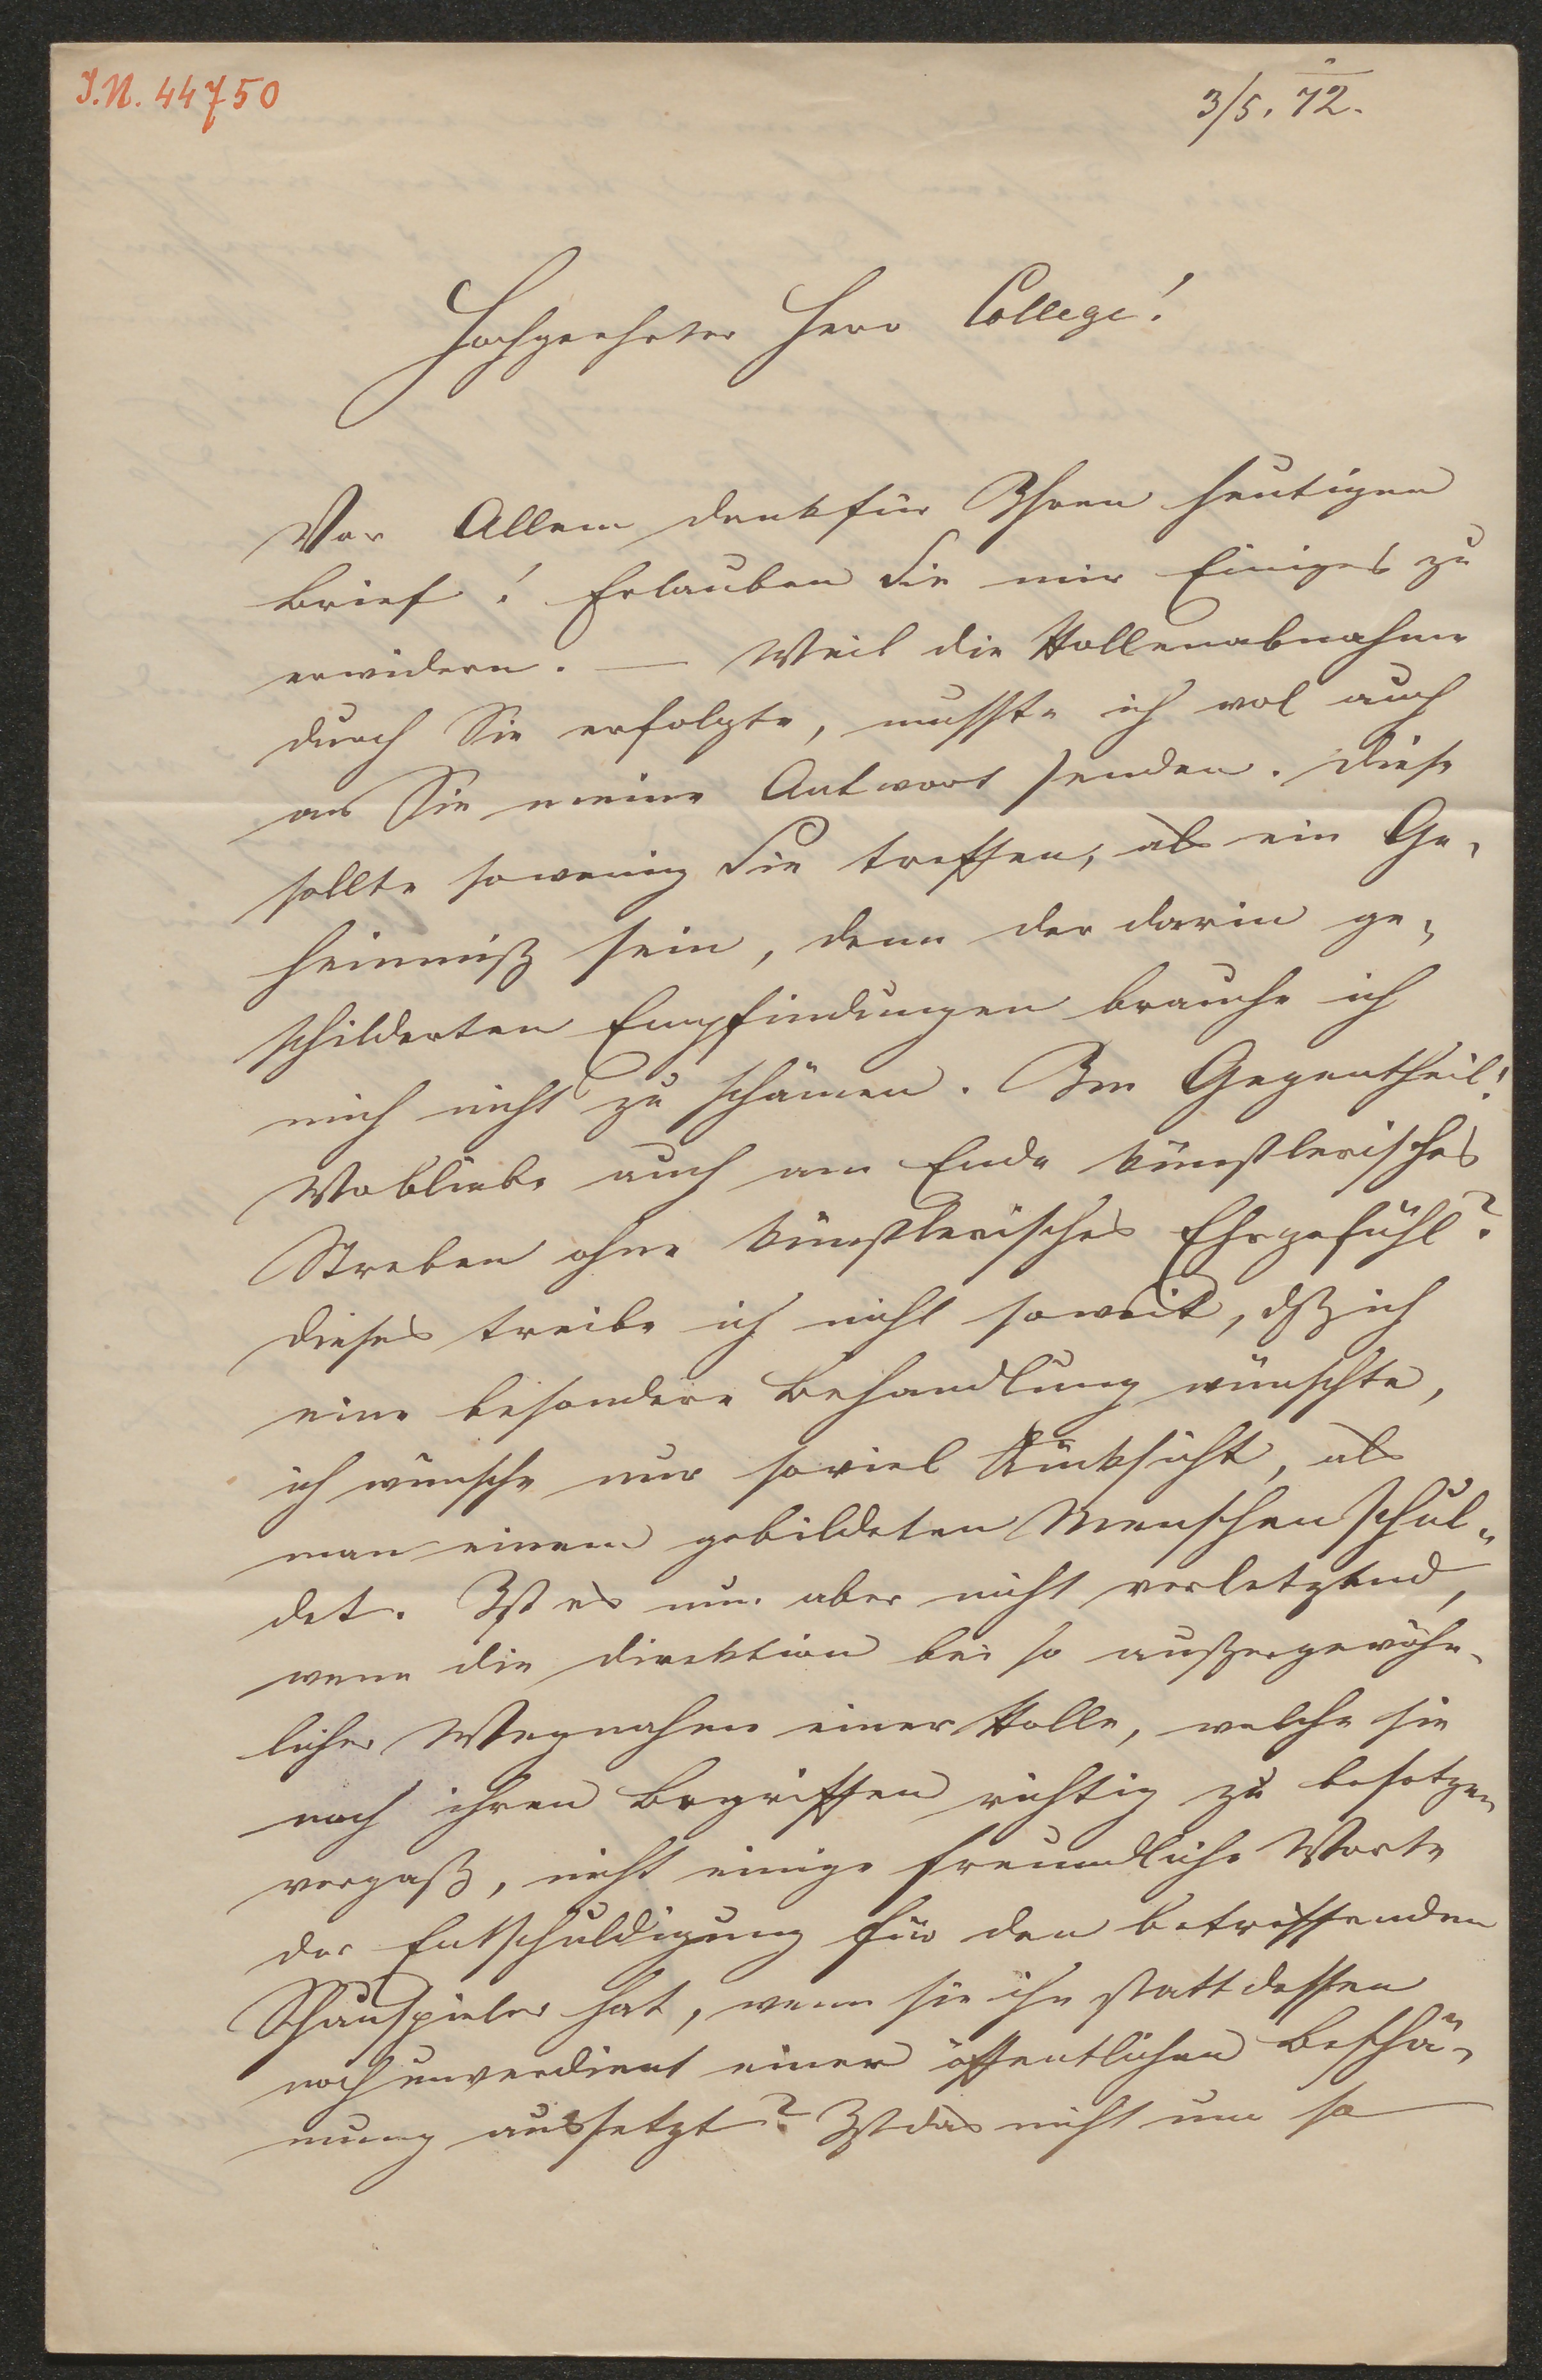 J.N. 44750
3/5. 72.
Hochgeehrter Herr College!
Vor Allem Dank für Ihren heutigen
Brief! Erlauben Sie mir Einiges zu
erwidern. — Weil die Rollenabnahme
durch Sie erfolgte, musste ich wol auch
an Sie meine Antwort senden. Diese
sollte sowenig Sie treffen, als ein Ge-
heimniß sein, denn der darin ge-
schilderten Empfindungen brauche ich
mich nicht zu schämen. Im Gegentheil!
Wo bliebe auch am Ende künstlerisches
Streben ohne künstlerisches Ehrgefühl?
Dieses treibe ich nicht soweit, dß ich
eine besondere Behandlung wünschte,
ich wünsche nur soviel Rücksicht, als
man einem gebildeten Menschen schul-
det. Ist es nun aber nicht verletzend,
wenn die Direktion bei so außergewöhn-
licher Wegnahme einer Rolle, welche sie
nach ihren Begriffen richtig zu besetzen
vergaß, nicht einige freundliche Worte
der Entschuldigung für den betreffenden
Schauspieler hat, wenn sie ihn statt dessen
noch unverdient einer öffentlichen Beschä-
mung aussetzt? Ist das nicht um so